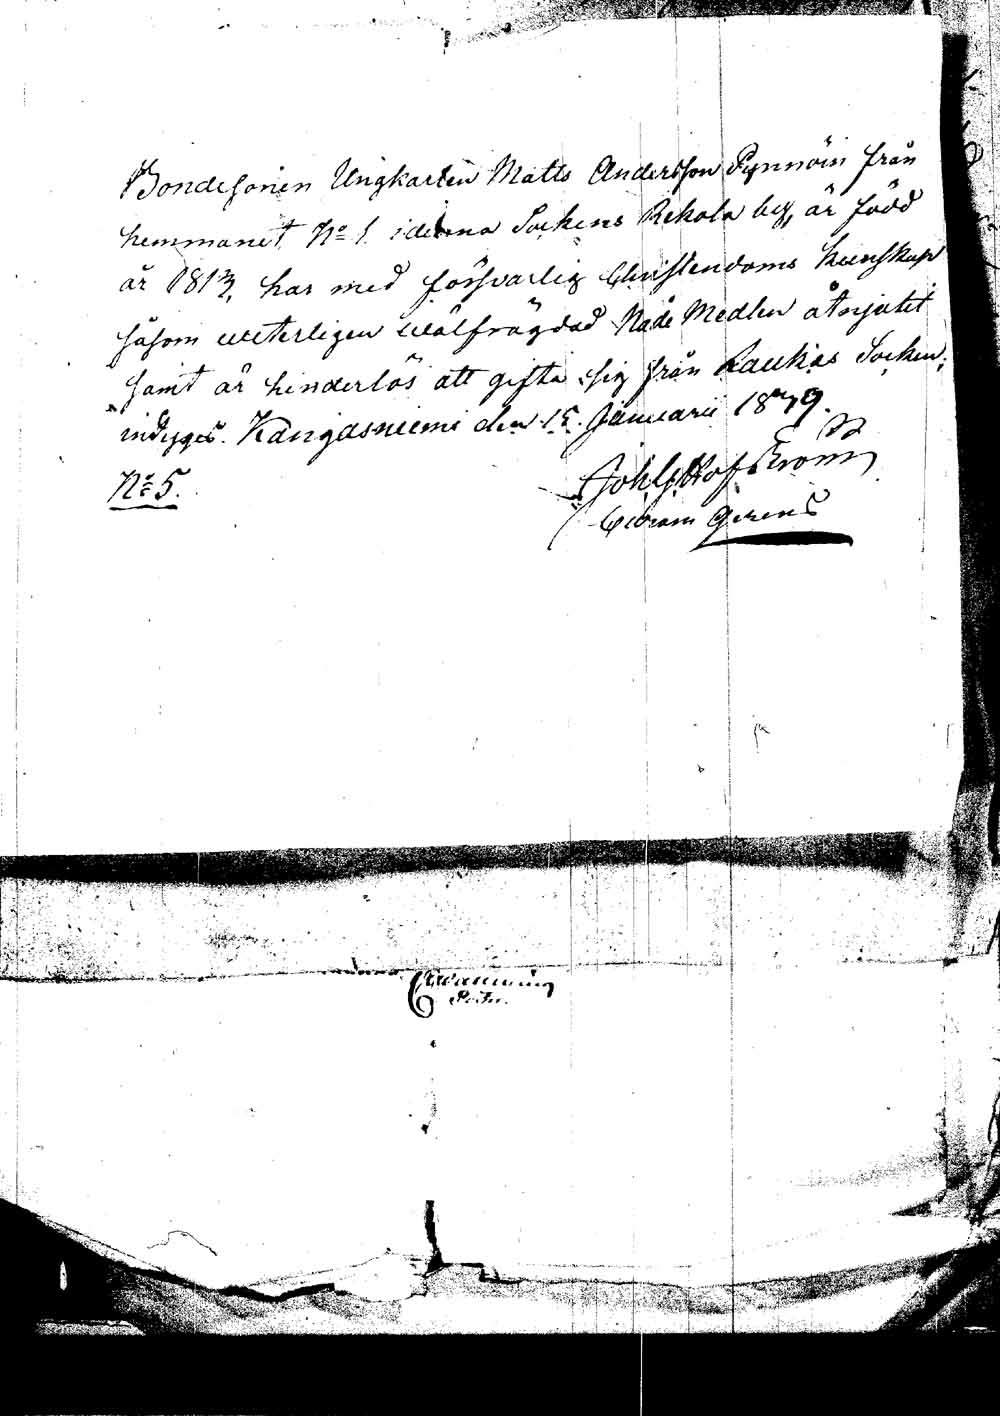 Bondesonen Ungkarlen Matts Andersson Pynnöin från
hemmanet No 1 i denna Sockens Rekola by, är född
år 1813, har med försvarlig Christendoms kunskap
såsom weterligen wälfrägdad Nåde Medlen åtnjutit
samt är hinderlös att gifta sig från Laukas Socken;
intygges. Kangasniemi den 15 Januarii 1839.
No 5. Joh G Hofström